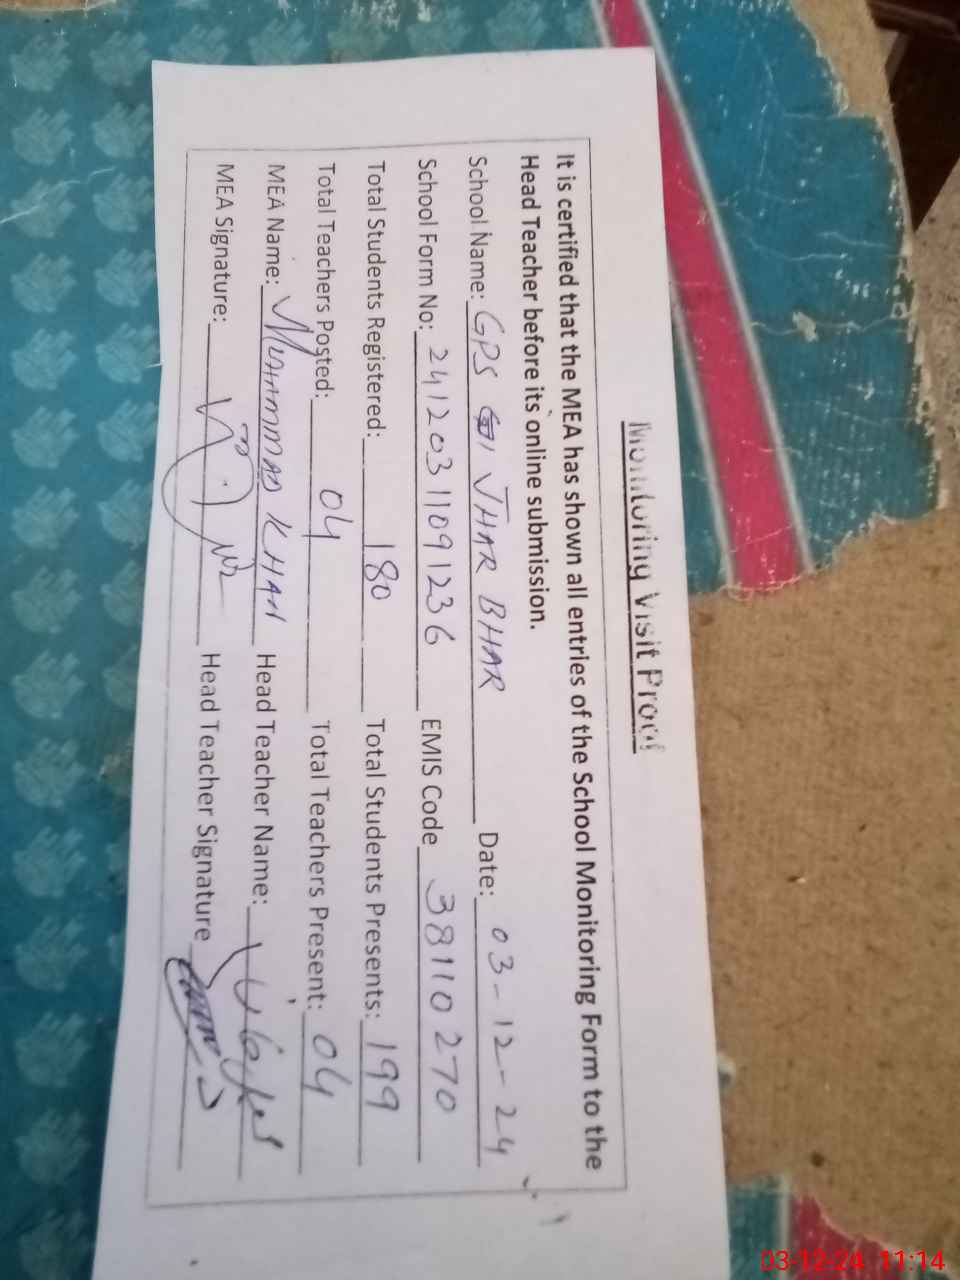 Monitoring Visit Proof
It is certified that the MEA has shown all entries of the School Monitoring Form to the
Head Teacher before its online submission.
School Name: GPS JHAR BHAR Date: 03-12-24
School Form No: 24120311091236 EMIS Code 38110270
Total Students Registered: 180 Total Students Presents: 199
Total Teachers Posted: 04 Total Teachers Present: 04
MEA Name: MUHAMMAD KHAN Head Teacher Name:
MEA Signature: Head Teacher Signature
03-12-24 11:14